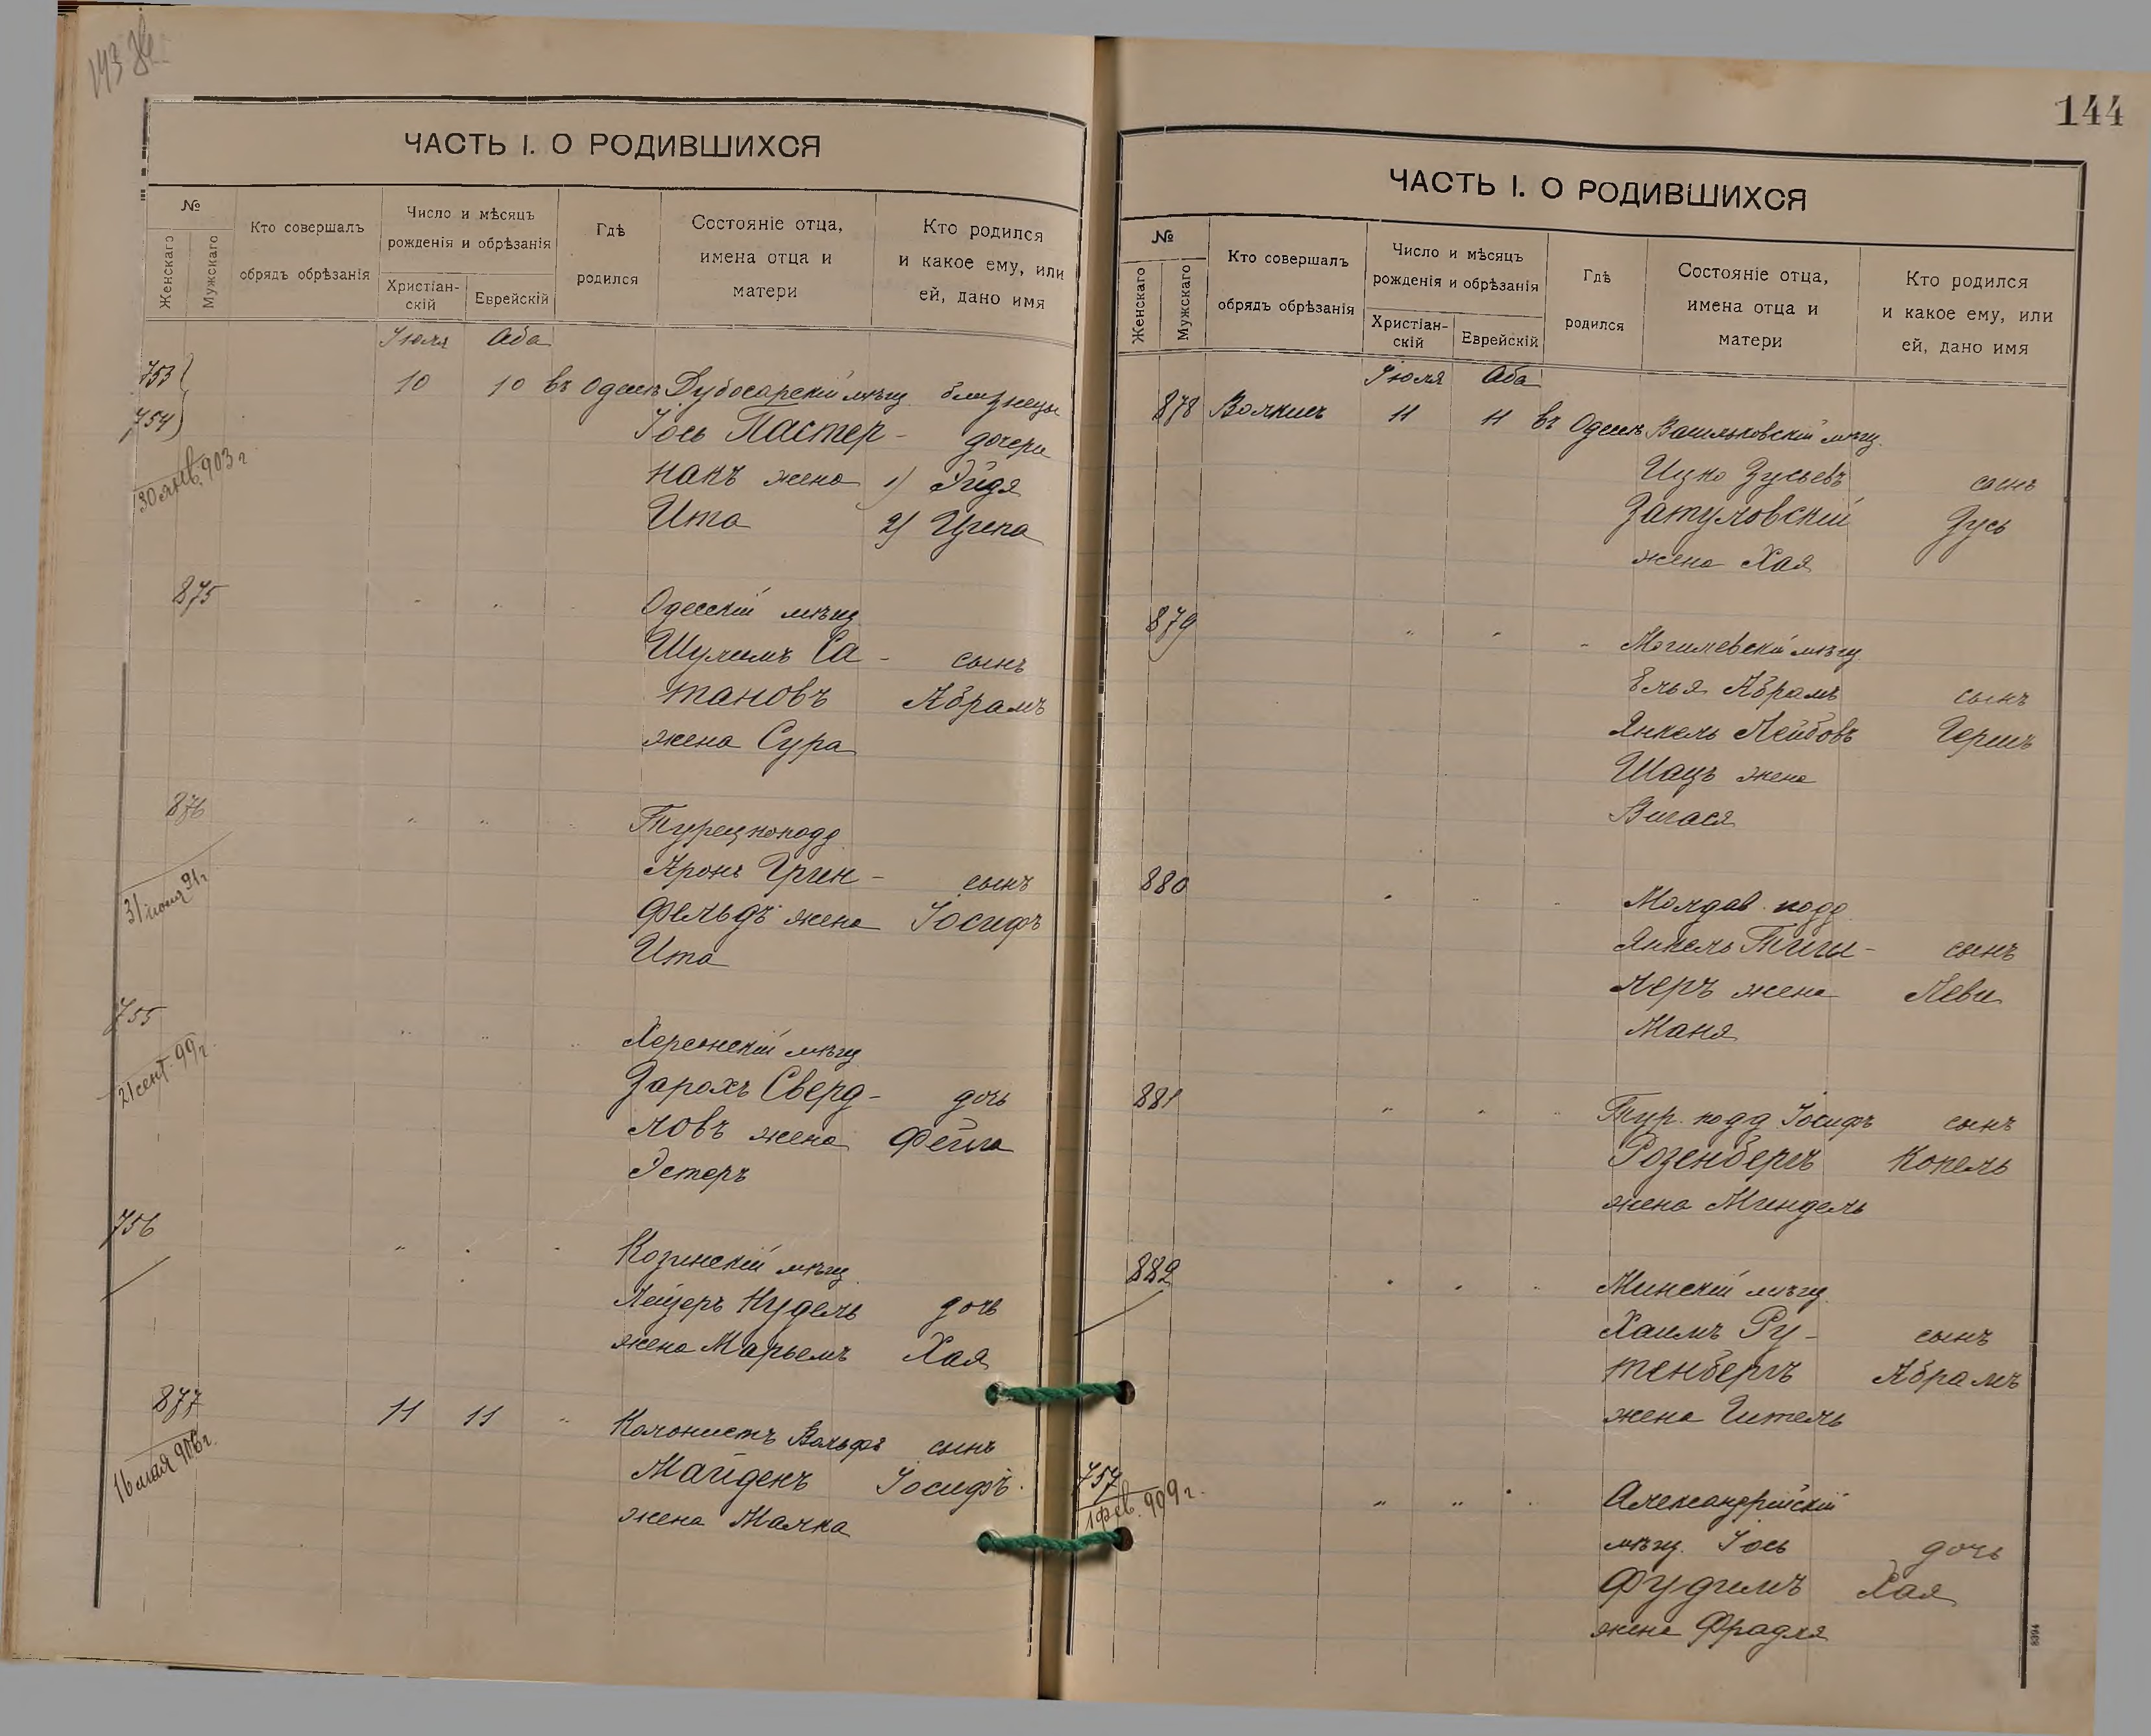 ЧАСТЬ I. О РОДИВШИХСЯ
№
Женскаго
Мужскаго
Кто совершалъ
обрядъ обрѣзанія
Число и мѣсяцъ
рожденія и обрѣзанія
Христіан-
скій
Еврейскій
Гдѣ
родился
Состояніе отца,
имена отца и
матери
Кто родился
и какое ему, или
ей, дано имя
Іюля Аба
753
754
30 янв. 903 г
10 10 въ Одессѣ Дубосарскій мѣщ. близнецы
Іось Пастер- дочери
накъ жена 1) Эйдя
Ита 2)
875 " " Одесскій мѣщ.
Шулимъ Са- сынъ
тановъ Абрамъ
жена Сура
876 " " " Турецкоподд.
Аронъ Грин- сынъ
фельдъ жена Іосифъ
Ита
31 91 г
755 " " " Херсонскій мѣщ
Зарахъ Сверд- дочь
ловъ жена Фейга
Эстеръ
21 сент. 99 г.
756 " " " Козинскій мѣщ.
Лейзеръ Нудель дочь
жена Марьемъ Хая
877 11 11 " Колонистъ Вольфъ сынъ
Майденъ Іосифъ
жена Малка
16 мая 906 г.
144
ЧАСТЬ I. О РОДИВШИХСЯ
№
Женскаго
Мужскаго
Кто совершалъ
обрядъ обрѣзанія
Число и мѣсяцъ
рожденія и обрѣзанія
Христіан-
скій
Еврейскій
Гдѣ
родился
Состояніе отца,
имена отца и
матери
Кто родился
и какое ему, или
ей, дано имя
Іюля Аба
878 11 11 въ Одессѣ Васильковскій мѣщ.
Ицко Зусьевъ сынъ
Затуловскій Зусь
жена Хая
879 " " " Могилевскій мѣщ.
Элья Абрамъ сынъ
Янкель Лейбовъ Гершъ
Шацъ жена
880 " " " Молдав. подд.
Янкель сынъ
леръ жена Леви
Маня
881 " " " Тур. подд Іосифъ сынъ
Розенбергъ Копель
жена Миндель
882 " " " Минскій мѣщ.
Хаимъ Ру- сынъ
тенбергъ Абрамъ
жена Гитель
757 " " " Александрійскій
мѣщ. Іось дочь
Фудимъ Хая
жена Фрадля
1 фев. 909 г.
8394